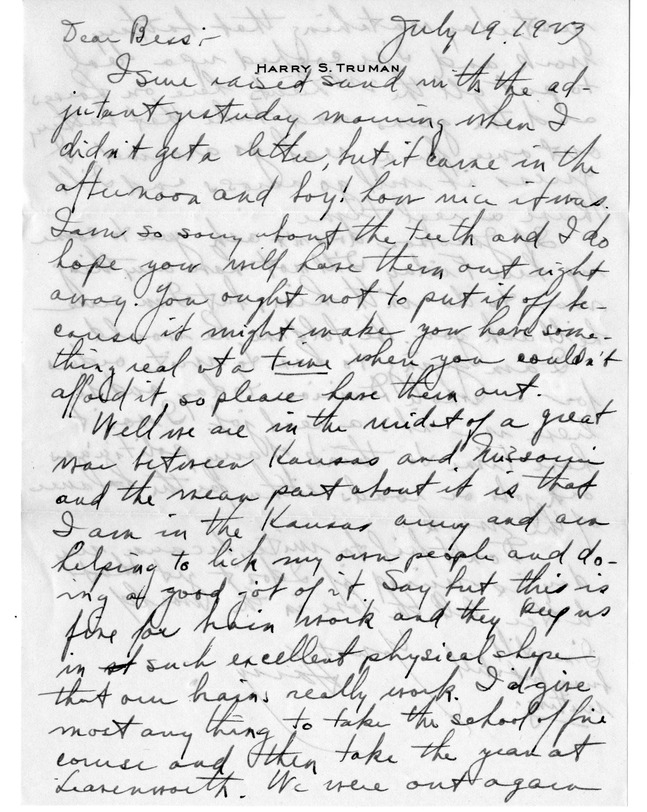 July 19, 1923
Dear Bess:-
HARRY S. TRUMAN
I sure raised sand with the ad-
jutant yesterday morning when I
didn't get a letter, but it came in the
afternoon and boy! how nice it was.
I am so sorry about the teeth and I do
hope you will have them out right
away. You ought not to put it off be-
cause it might make you have some-
thing real at a time when you couldn't
afford it, so please have them out.
Well we are in the midst of a great
war between Kansas and Missouri
and the mean part about it is that
I am in the Kansas army and am
helping to lick my own people and do-
ing a good job of it. Say but this is
fine for brain work and they keep us
in such excellent physical shape
that our brains really work. I'd give
most anything to take the school of fire
course and then take the year at
Leavenworth. We were out again